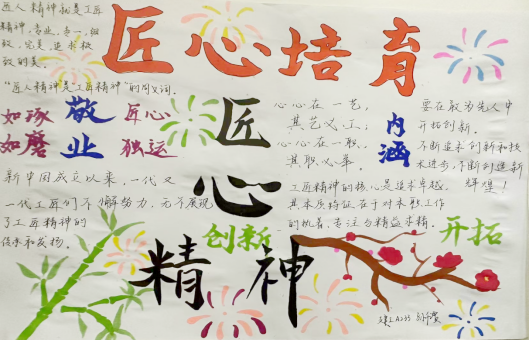 匠人精神就是工匠
精神,专业,专一,细
致,完美,追求极
致的美。
匠心培育
"匠人精神是工匠精神"的同义词。
如琢
如磨
敬
业
匠心
独运
匠
心
精神
心心在一艺,
其艺必工;
心心在一职,
其职必举。
内
涵
要在敢为先人中
开拓创新,
不断追求创新和技
术进步,不断创造新
辉煌!
新中国成立以来,一代又
一代工匠们不懈努力,无不展现
了工匠精神的
传承和发扬。
工匠精神的核心是追求卓越,
其本质特征在于对本职工作
的执着、专注与精益求精。
创新
开拓